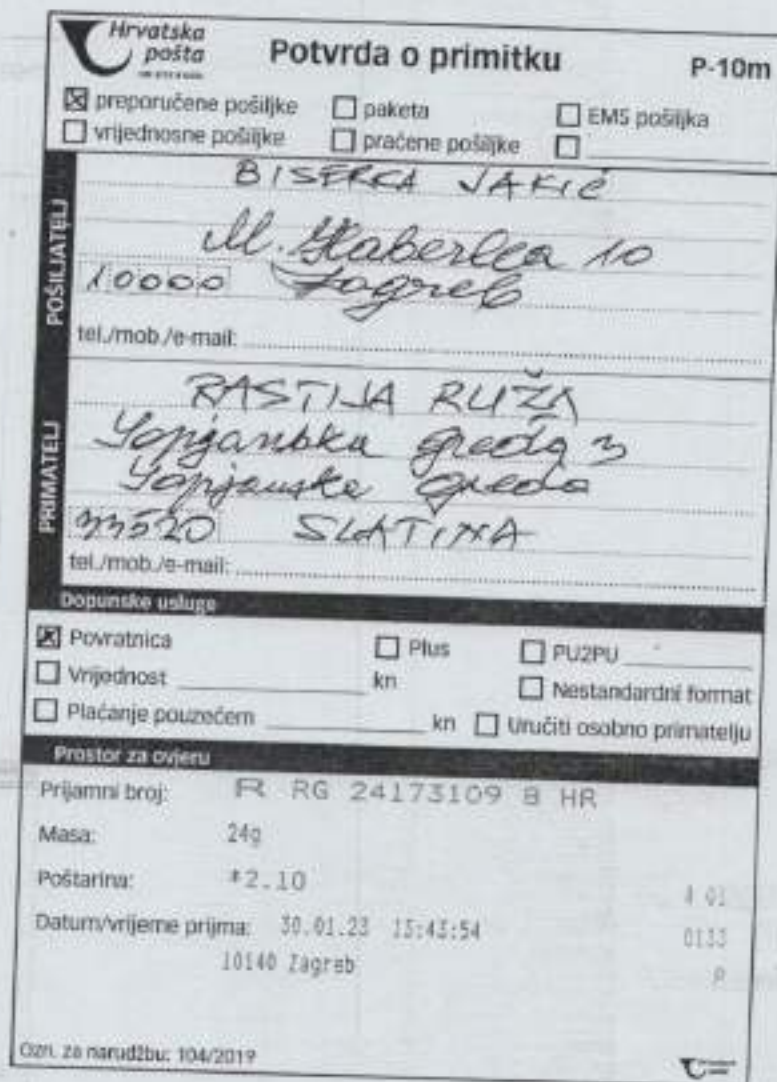 Hrvatska
pošta
Potvrda o primitku
P-10m
preporučene pošiljke
paketa
EMS pošiljka
vrijednosne pošiljke
praćene pošiljke
POŠILJATELJ
BISERKA JAKIĆ
M. Haberlea 10
10000 Zagreb
tel./mob./e-mail:
PRIMATELJ
RASTIJA RUŽA
greda 3
greda
33520 SLATINA
tel./mob./e-mail:
Dopunske usluge
Povratnica
Plus
PU2PU
Vrijednost kn
Nestandardni format
Plaćanje pouzećem kn
Uručiti osobno primatelju
Prostor za ovjeru
Prijamni broj: R RG 24173109 8 HR
Masa: 24g
Poštarina: *2.10
4 01
Datum/vrijeme prijma: 30.01.23 15:43:54
0133
10140 Zagreb
P
Ozn. za narudžbu: 104/2019